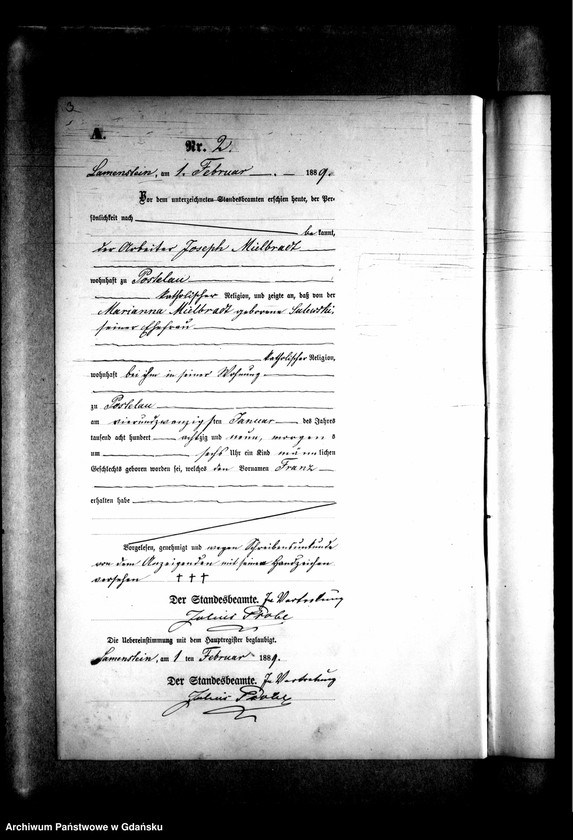 3
A.
Nr. 2.
Lamenstein, am 1. Februar 1889.
Vor dem unterzeichneten Standesbeamten erschien heute, der Per-
sönlichkeit nach
bekannt,
der Arbeiter Joseph Mielbradt
wohnhaft zu Postelau
katholischer Religion, und zeigte an, daß von der
Marianna Mielbradt geborene Salewski,
seiner Ehefrau
katholischer Religion,
wohnhaft bei ihm in seiner Wohnung
zu Postelau
am vierundzwanzigsten Januar des Jahres
tausend acht hundert achtzig und neun, morgens
um sechs Uhr ein Kind männlichen
Geschlechts geboren worden sei, welches den Vornamen Franz
erhalten habe
Vorgelesen, genehmigt und wegen Schreibensunkunde
von dem Anzeigenden mit seinem Handzeichen
versehen †††
Der Standesbeamte. In Vertretung
Julius Probl
Die Uebereinstimmung mit dem Hauptregister beglaubigt.
Lamenstein, am 1 ten Februar 1889.
Der Standesbeamte. In Vertretung
Julius Probl
Archiwum Państwowe w Gdańsku